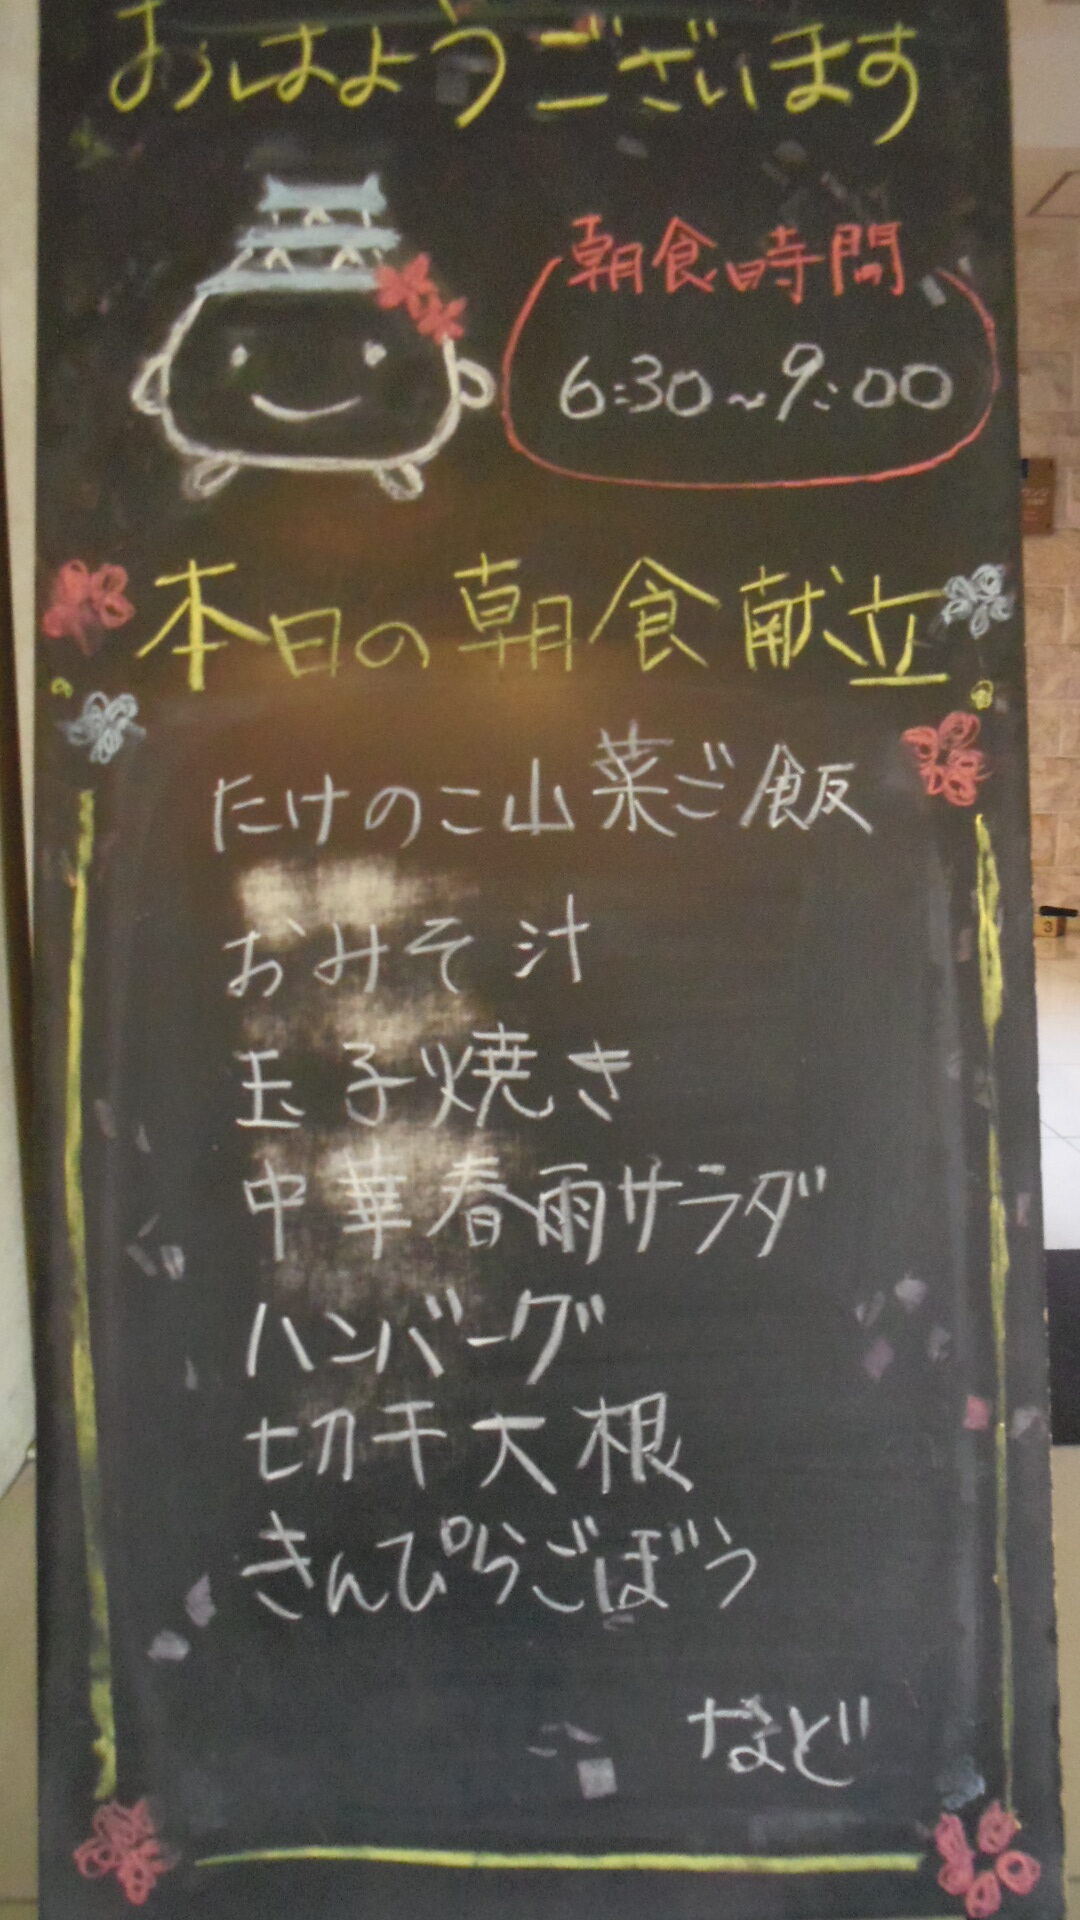 おはようございます
朝食時間
6:30~9:00
本日の朝食献立
たけのこ山菜ご飯
おみそ汁
玉子焼き
中華春雨サラダ
ハンバーグ
切干大根
きんぴらごぼう
など
3